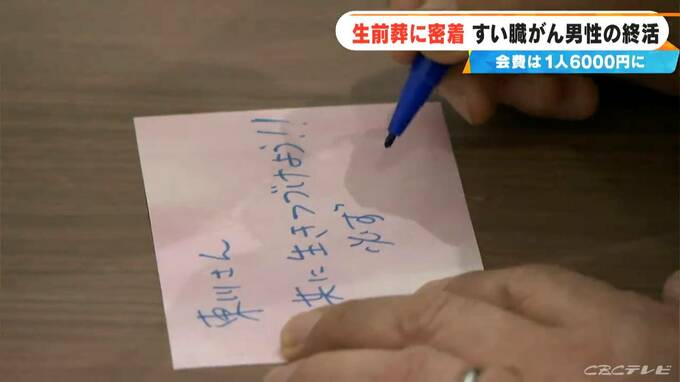 生前葬に密着 すい臓がん男性の終活
会費は1人6000円に
東川さん
共に生きつづけよう!!
必ず
CBCテレビ